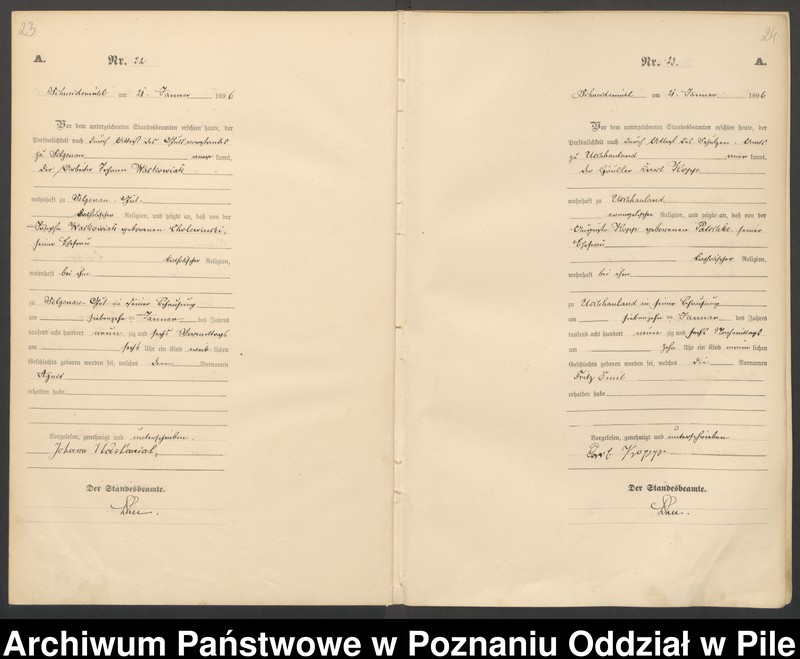 23
A.
Nr. 22
Schneidemühl am 21. Januar 1896
Vor dem unterzeichneten Standesbeamten erschien heute, der
Persönlichkeit nach durch Attest des Gutsvorstands
zu Selgenau kannt,
der Arbeiter Johann Waskowiak
wohnhaft zu Selgenau Gut
katholischer Religion, und zeigte an, daß von der
Josepha Waskowiak geborenen Cholewinski,
seiner Ehefrau
katholischer Religion,
wohnhaft bei ihm
zu Selgenau Gut in seiner Behausung
am siebenzehn ten Januar des Jahres
tausend acht hundert neun zig und sechs Vormittags
um sechs Uhr ein Kind weib lichen
Geschlechts geboren worden sei, welches den Vornamen
Agnes
erhalten habe
Vorgelesen, genehmigt und unterschrieben.
Johann Waskowiak
Der Standesbeamte.
24
Nr. 23. A.
Schneidemühl am 21. Januar 1896
Vor dem unterzeichneten Standesbeamten erschien heute, der
Persönlichkeit nach durch Attest des Schulzen-Amts
zu Uschhauland kannt,
der Häusler Karl Kopp
wohnhaft zu Uschhauland
evangelischer Religion, und zeigte an, daß von der
Auguste Kopp geborenen seiner
Ehefrau
katholischer Religion,
wohnhaft bei ihm
zu Uschhauland in seiner Behausung
am siebenzehn ten Januar des Jahres
tausend acht hundert neun zig und sechs Nachmittags
um zehn Uhr ein Kind männ lichen
Geschlechts geboren worden sei, welches die Vornamen
Fritz Emil
erhalten habe
Vorgelesen, genehmigt und unterschrieben
Karl Kopp
Der Standesbeamte.
Archiwum Państwowe w Poznaniu Oddział w Pile